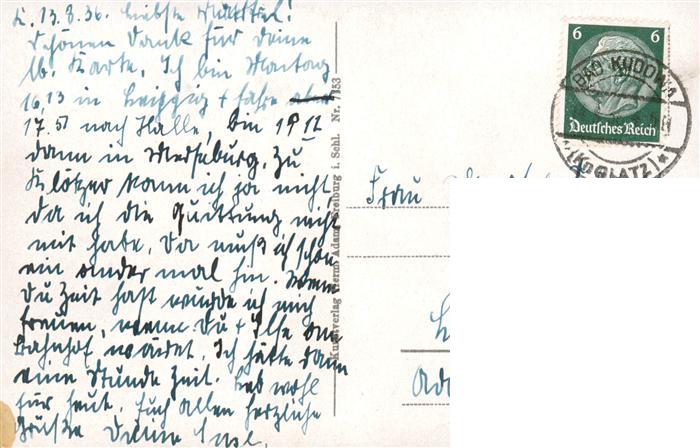 K. 13.8.36. Liebste Muttel!
Schönen Dank für Deine
lb. Karte. Ich bin Montag
16,13 in Leipzig + fahre
17.51 nach Halle, bin 1912
dann in Merseburg. Zu
Klötzer kann ich ja nicht
da ich die Quittung nicht
mit habe. Da muß ich schon
ein ander mal hin. Wenn
Du Zeit hast würde ich mich
freuen, wenn Du + Ilse am
Bahnhof wäret. Ich hätte dann
eine Stunde Zeit. Leb wohl
für heut. Euch allen herzliche
Grüße Deine
Kunstverlag Herm. Adam, Freiburg i. Schl. Nr. 7153
6 6
Deutsches Reich
BAD KUDOWA
(Kr. GLATZ)
Frau